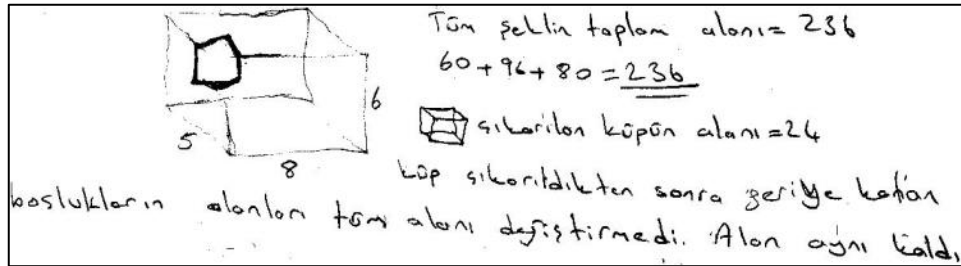 Tüm şeklin toplam alanı= 236
60+96+80=236
6
5
8
çıkarılan küpün alanı=24
küp çıkarıldıktan sonra geriye kalan
boşlukların alanları tüm alanı değiştirmedi. Alan aynı kaldı